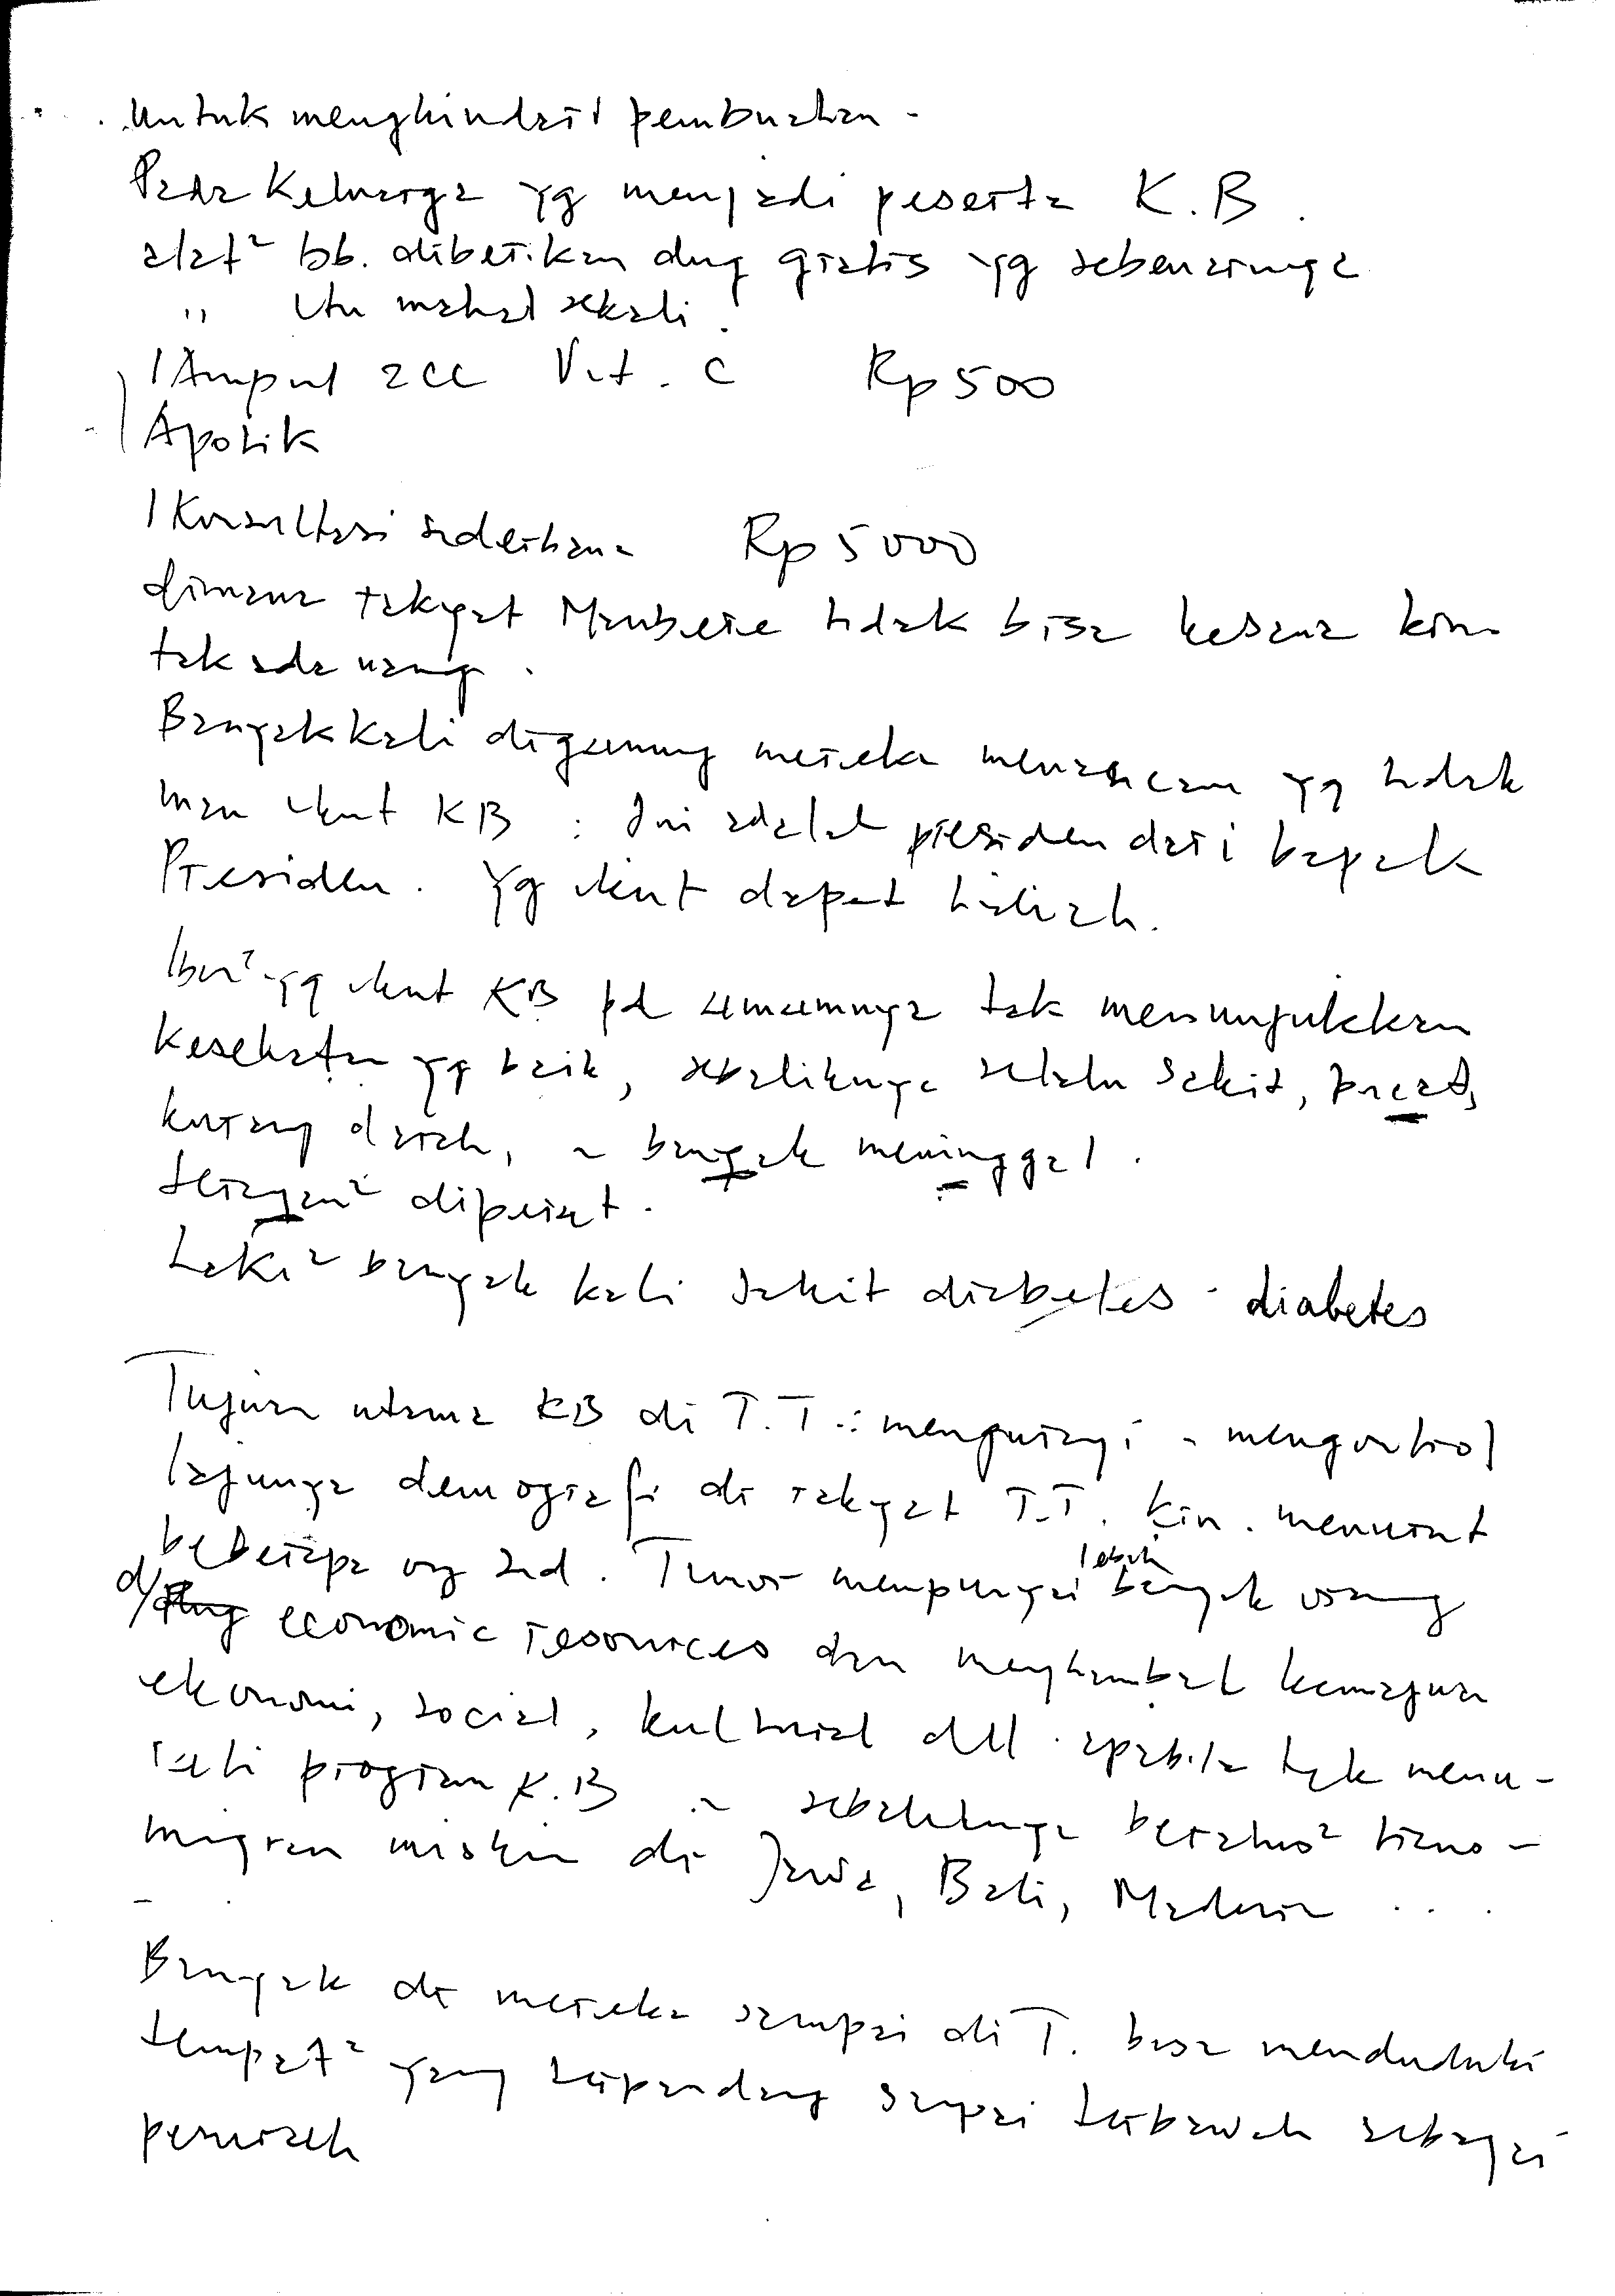 untuk menghindari pembuahan -
Pada Keluarga yg menjadi peserta K.B.
alat² bb. diberikan dng gratis yg sebenarnya
" itu mahal sekali.
1 Ampul 2cc Vit. C Rp 500
Apotik
1 Konsultasi sederhana Rp 5000
dimana rakyat Maubere tidak bisa kesana krn.
tak ada uang.
Banyak kali digunung mereka menancam yg tidak
mau ikut KB : Ini adalah presiden dari bapak
Presiden. Yg ikut dapat hadiah.
Ibu² yg ikut KB pd umumnya tak menunjukkan
kesehatan yg baik, sebaliknya selalu sakit, pucat,
kurang darah, ~ banyak meninggal.
teragan² diperiat.
Laki² banyak kali sakit diabetes - diabetes
Tujuan utama KB di T.T.: mengurangi ~ mengontrol
lajunya demografi di rakyat T.T. krn. menurut
beberapa org Ind. Timor mempunyai lebih banyak orang
d/ economic resources dan menghambat kemajuan
ekonomi, social, kultural dll. apabila tak menu-
ruti program K.B ~ sebaliknya beratus² trans-
migran miskin di Jawa, Bali, Madura ...
Banyak dr mereka sampai di T. bisa menduduki
tempat² yang terpandang sampai terbawah sebagai